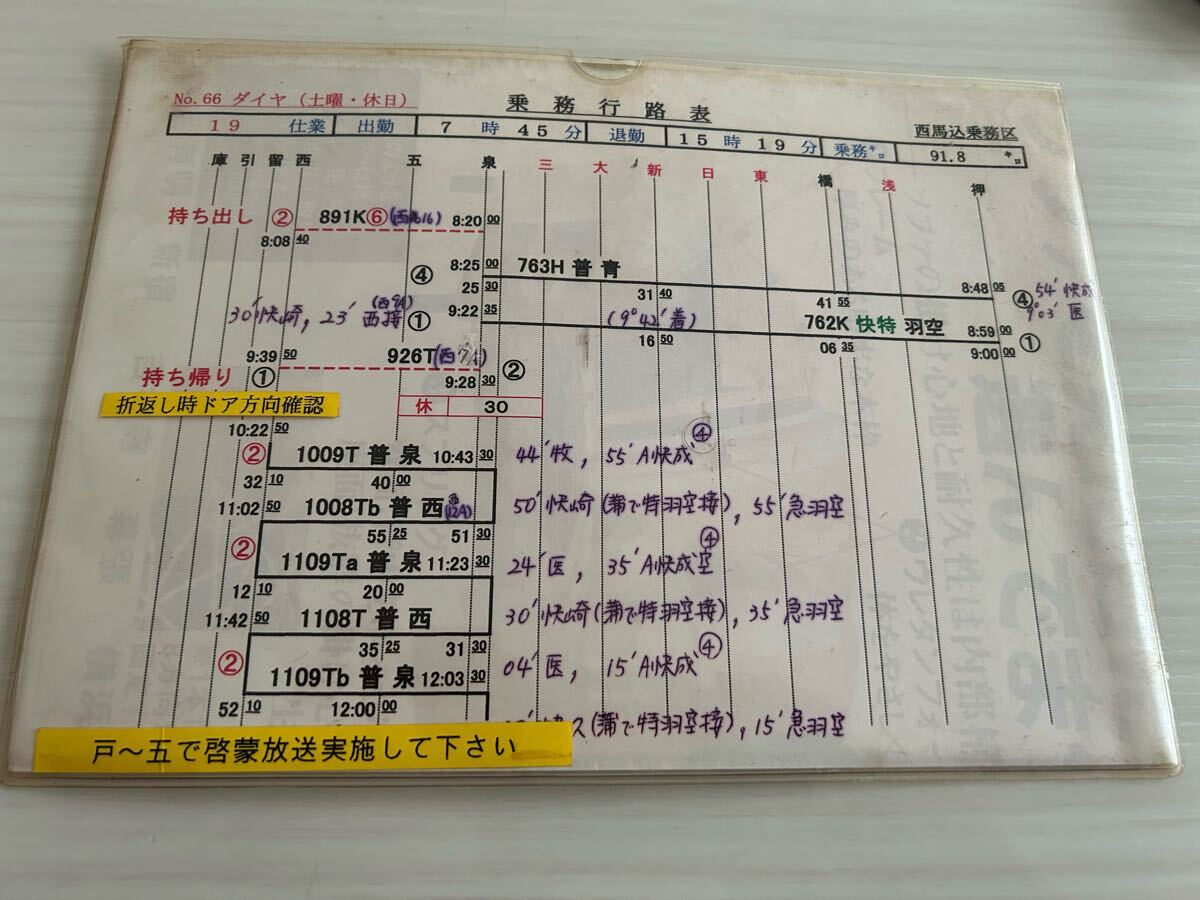 No.66 ダイヤ（土曜・休日） 乗務行路表
19 仕業 出勤 7時45分 退勤 15時19分 乗務キロ 91.8 キロ
西馬込乗務区
庫 引 留 西 五 泉 三 大 新 日 東 橋 浅 押
持ち出し ② 891K⑥ 8:20 00
8:08 40
④ 8:25 00 763H 普青 8:48 05 ④ 54′快成
25 30 31 40 41 55 9°03′医
30′快崎, 23′西接 ① 9:22 35 (9°42′着) 762K 快特 羽空 8:59 00 ①
16 50 06 35 9:00 00
9:39 50 926T
持ち帰り ① 9:28 30 ②
折返し時ドア方向確認
休 30
10:22 50
② 1009T 普泉 10:43 30 44′牧, 55′A快成④
32 10 40 00
11:02 50 1008Tb 普西 50′快崎(蒲で特羽空接), 55′急羽空
55 25 51 30
② 1109Ta 普泉 11:23 30 24′医, 35′A快成空④
12 10 20 00
11:42 50 1108T 普西 30′快崎(蒲で特羽空接), 35′急羽空
35 25 31 30
② 1109Tb 普泉 12:03 30 04′医, 15′A快成④
52 10 12:00 00
(蒲で特羽空接), 15′急羽空
戸～五で啓蒙放送実施して下さい